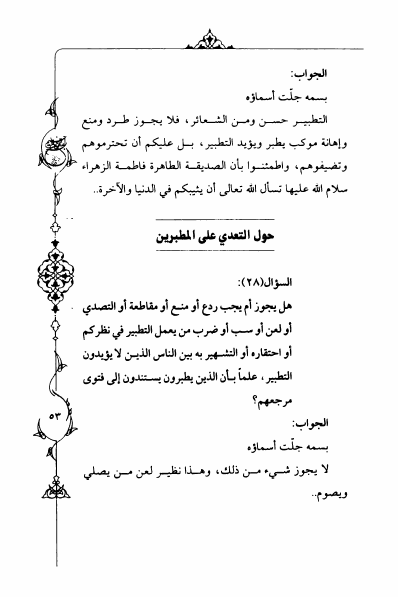 الجواب:
بسمه جلّت أسماؤه
التطبيـر حسـن ومـن الشـعائر، فلا يجـوز طـرد ومنع
وإهانة موكب يطبر ويؤيد التطبير، بـل عليكم أن تحترموهم
وتضيفوهـم، واطمئنـوا بـأن الصديقـة الطاهرة فاطمـة الزهراء
سلام الله عليها تسأل الله تعالى أن يثيبكم في الدنيا والآخرة..
حول التعدي على المطبرين
السؤال(٢٨):
هل يجوز أم يجب ردع أو منـع أو مقاطعة أو التصدي
أو لعن أو سـب أو ضرب من يعمل التطبير في نظركم
أو احتقاره أو التشـهير به بين الناس الذيـن لا يؤيدون
التطبير، علمـاً بـأن الذين يطبرون يسـتندون إلى فتوى
مرجعهم؟
الجواب:
بسمه جلّت أسماؤه
لا يجـوز شـيء مـن ذلك، وهـذا نظيـر لعن مـن يصلي
ويصوم..
٥٣